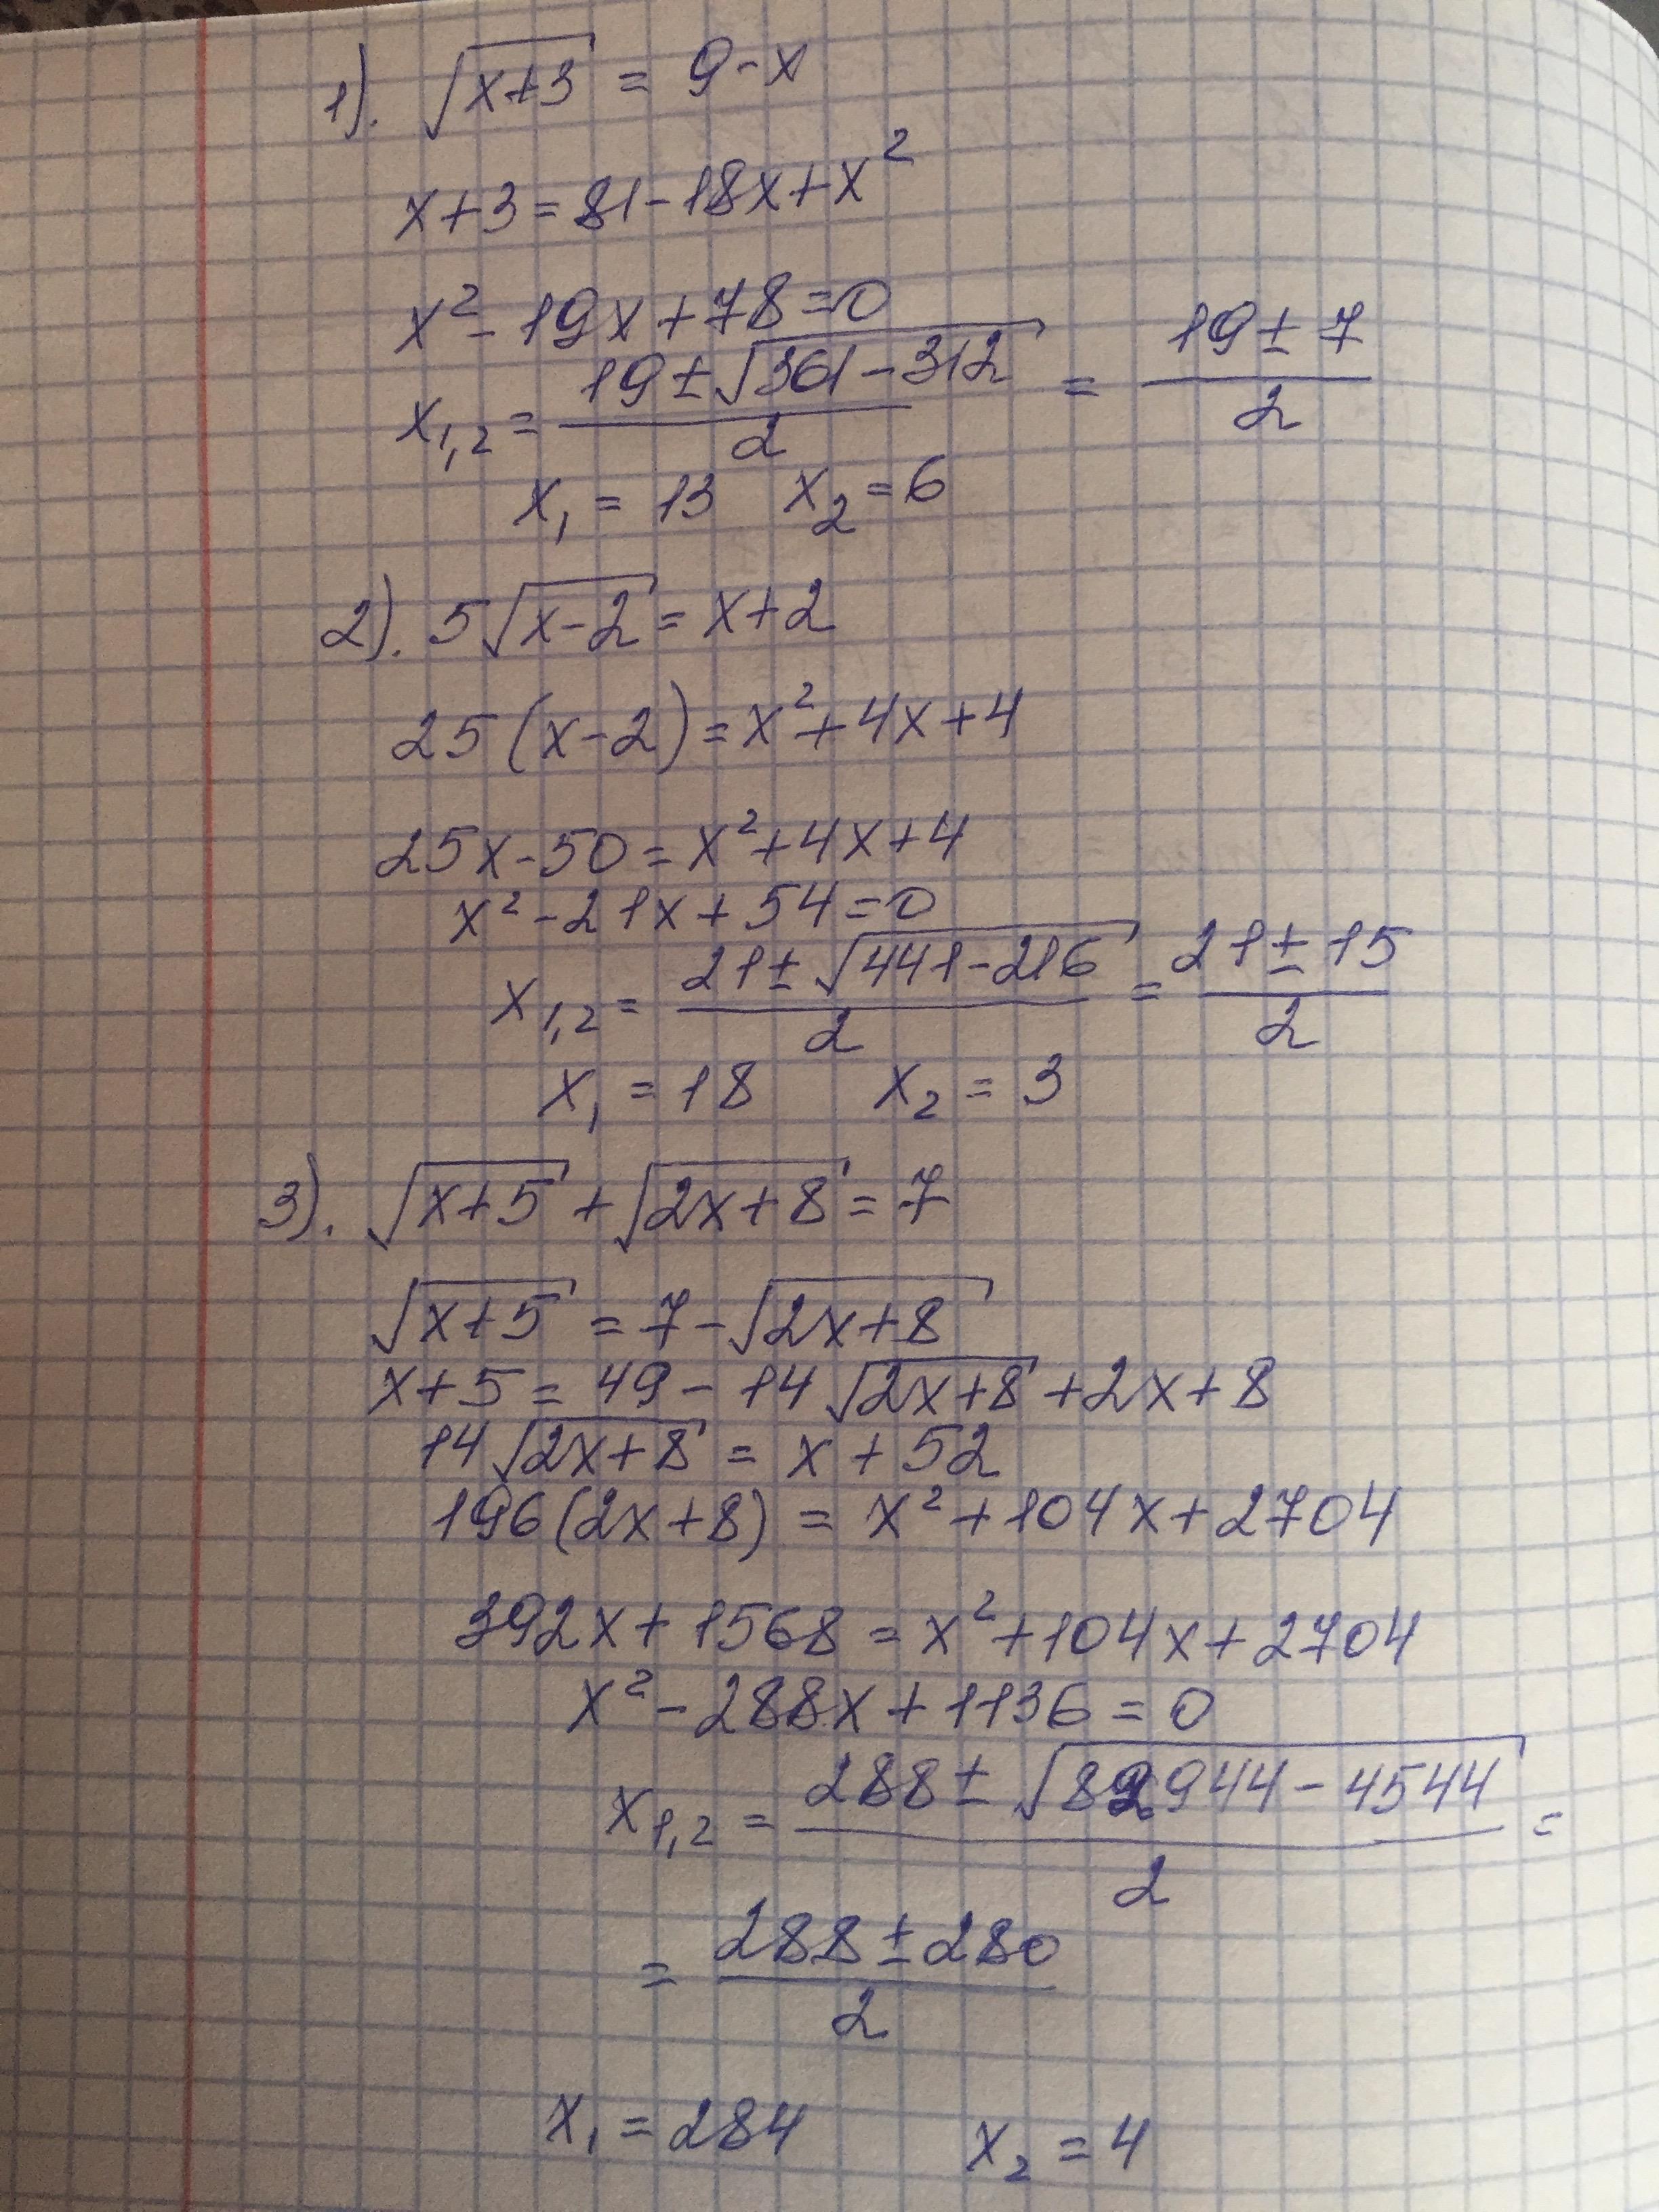 1). √(x+3) = 9-x
x+3=81-18x+x²
x²-19x+78=0
x₁,₂ = (19±√(361-312))/2 = (19±7)/2
x₁ = 13 x₂ = 6
2). 5√(x-2) = x+2
25(x-2)=x²+4x+4
25x-50=x²+4x+4
x²-21x+54=0
x₁,₂ = (21±√(441-216))/2 = (21±15)/2
x₁ = 18 x₂ = 3
3). √(x+5) + √(2x+8) = 7
√(x+5) = 7-√(2x+8)
x+5 = 49 - 14√(2x+8) + 2x+8
14√(2x+8) = x + 52
196(2x+8) = x²+104x+2704
392x+1568 = x²+104x+2704
x²-288x+1136 = 0
x₁,₂ = (288±√(82944-4544))/2 =
= (288±280)/2
x₁ = 284 x₂ = 4